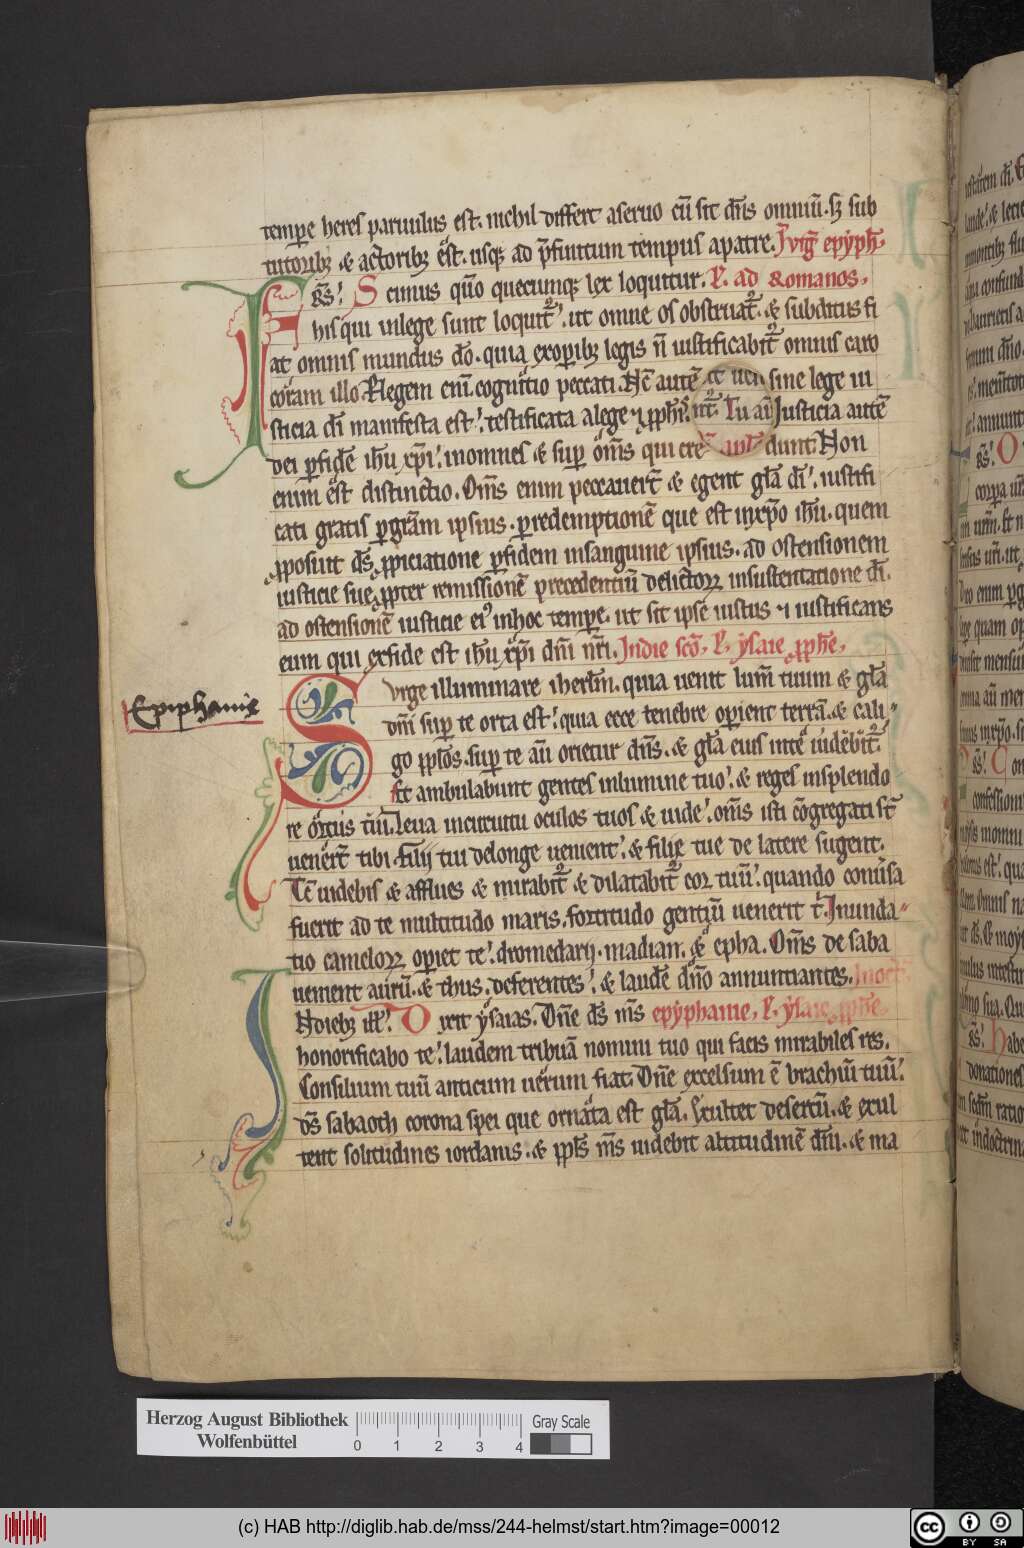 tempore heres paruulus est. nichil differt aseruo cū sit dn̄s omniū. sꝫ sub
tutoribꝫ & actoribꝫ est. usqꝫ ad p̄finitum tempus apatre. In uig̅ epyph̅.
Fr̅s. Scimus qm̅o quecunqꝫ lex loquitur. L. ad Romanos.
his qui inlege sunt loquit᷑. ut omne os obstruat᷑. & subditus fi
at omnis mundus dō. quia exoꝑibꝫ legis n̄ iustificabit᷑ omnis caro
coram illo. ꝑlegem eni̅ cognitio peccati. Nc̄ autē sine lege iu
sticia dī manifesta est. testificata alege ⁊ ꝓph̅is. Iusticia autē
dei ꝑfidē ih̅u xp̅i. inomnes & suꝑ om̅s qui cre dunt. Non
enim est distinctio. Om̅s enim peccauert̅ & egent gl̅a dī. iustifi
cati gratis ꝑgr̅am ipsius. ꝑredemptionē que est inxp̅o ih̅u. quem
ꝓposuit ds̅ ꝓpiciatione ꝑfidem insanguine ipsius. ad ostensionem
iusticie sue ꝓpter remissionē precedentiū delictoꝝ insustentatione dī.
ad ostensionē iusticie ei᷒ inhoc tempore. ut sit ipse iustus ⁊ iustificans
eum qui exfide est ih̅u xp̅i dn̅i nr̅i. Indie sc̅o. L. ysaie ꝓph̅e.
Surge illuminare iherlm̅. quia uenit lum̅ tuum & gl̅a
Epiphanie
dn̅i suꝑ te orta est. quia ecce tenebre oꝑient terrā. & cali
go ppl̅os. suꝑ te aū orietur dn̅s. & gl̅a eius inte uidebit᷑.
Et ambulabunt gentes inlumine tuo. & reges insplendo
re ortus tui. Leua incircuitu oculos tuos & uide. om̅s isti ꝯgregati st̅
uenert̅ tibi. Filij tui delonge uenient. & filie tue de latere sugent.
Tc̅ uidebis & afflues & mirabit᷑ & dilatabit᷑ cor tuū. quando conūsa
fuerit ad te multitudo maris. fortitudo gentiū uenerit t̅. Inunda
tio cameloꝝ oꝑiet te. dromedarij. madian. & epha. Om̅s de saba
uenient aurū. & thus. deferentes. & laudē dn̅o annuntiantes. In oct̅.
In diebꝫ ill̅. Dixit ysaias. Dn̅e ds̅ m̅s epyphanie. L. ysaie ꝓph̅e.
honorificabo te. laudem tribuā nomini tuo qui facis mirabiles res.
Consilium tuū anticum uerum fiat. Dn̅e excelsum ē brachiū tuū.
Ds̅ sabaoth corona spei que ornata est gl̅a. Exultet desertū. & exul
tent solitudines iordanis. & ppl̅s m̅s uidebit altitudinē dn̅i. & ma
Herzog August Bibliothek
Wolfenbüttel
0 1 2 3 4
Gray Scale
(c) HAB http://diglib.hab.de/mss/244-helmst/start.htm?image=00012
cc BY SA